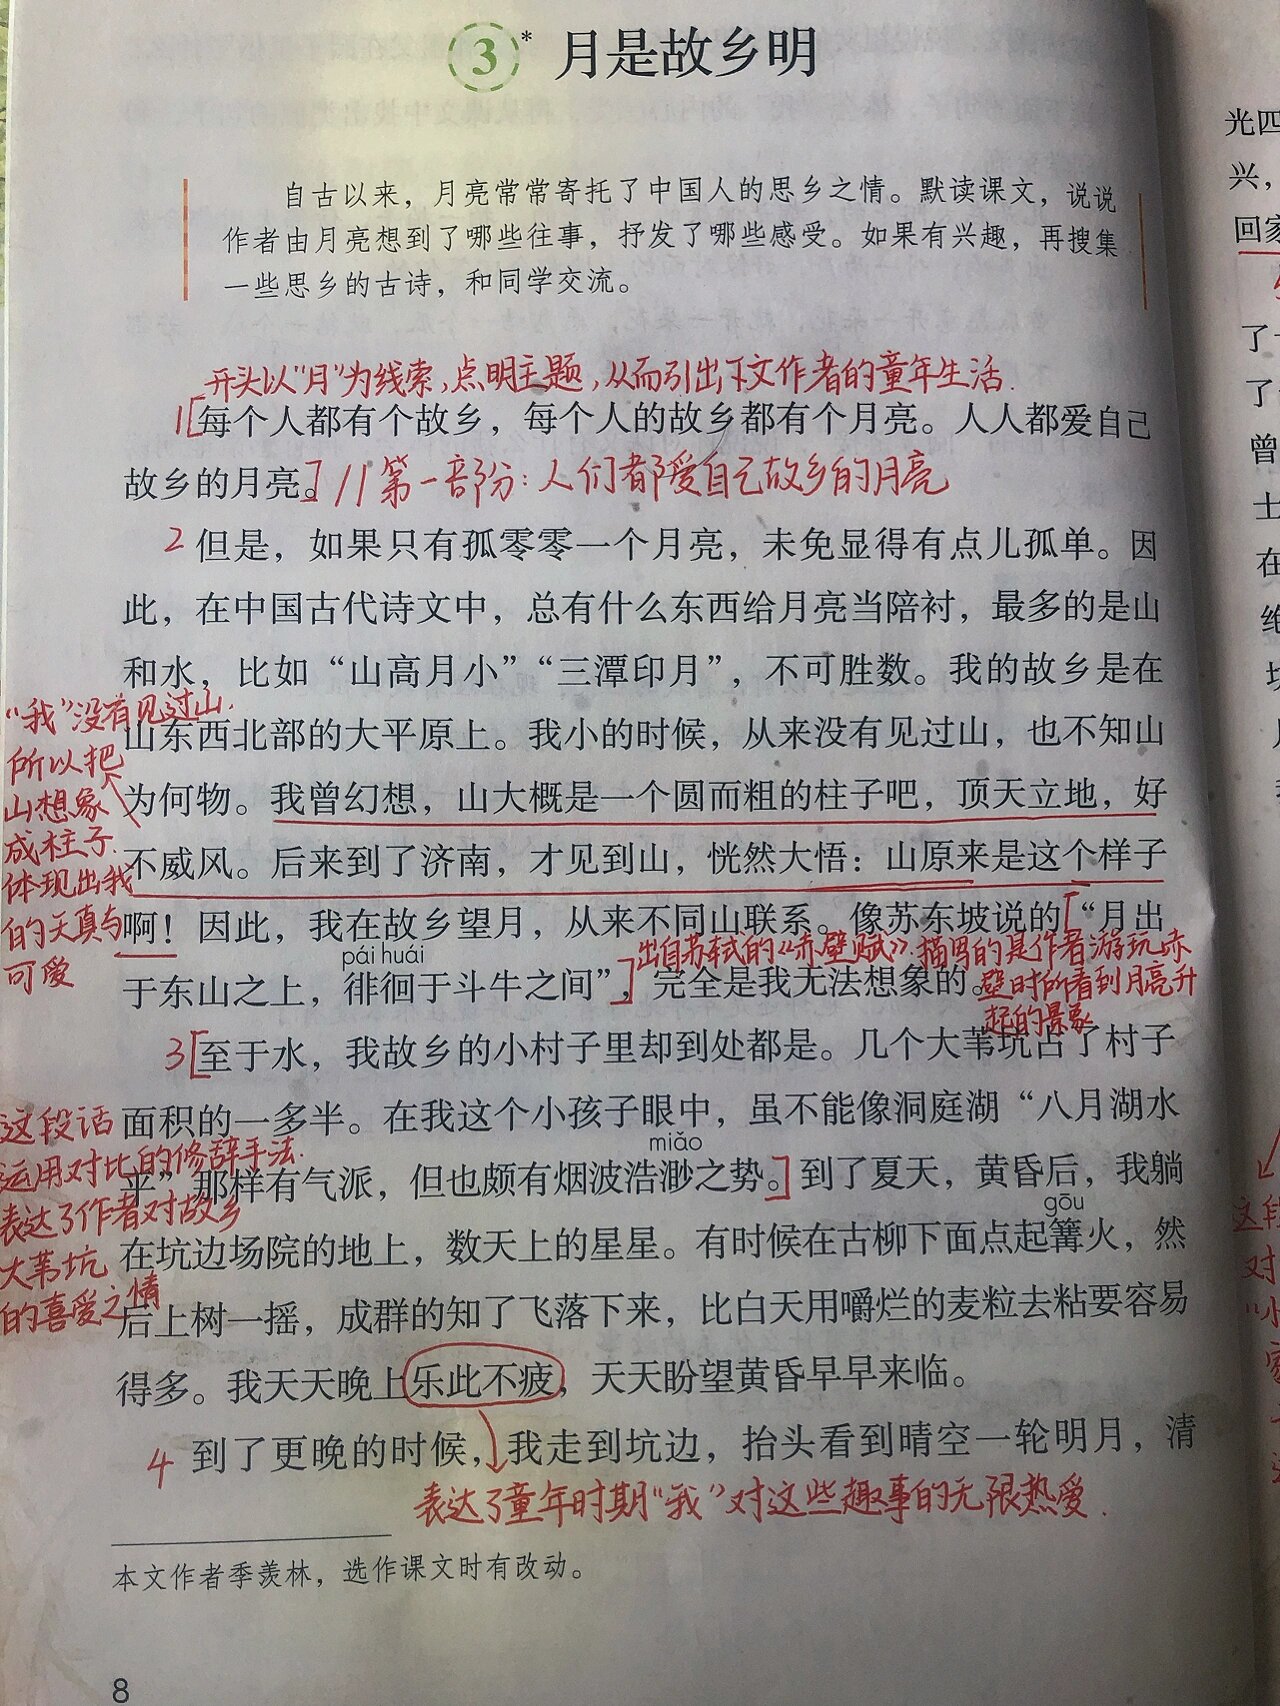 3* 月是故乡明
自古以来，月亮常常寄托了中国人的思乡之情。默读课文，说说
作者由月亮想到了哪些往事，抒发了哪些感受。如果有兴趣，再搜集
一些思乡的古诗，和同学交流。
开头以"月"为线索，点明主题，从而引出下文作者的童年生活.
1[每个人都有个故乡，每个人的故乡都有个月亮。人人都爱自己
故乡的月亮。]//第一部分：人们都爱自己故乡的月亮
2 但是，如果只有孤零零一个月亮，未免显得有点儿孤单。因
此，在中国古代诗文中，总有什么东西给月亮当陪衬，最多的是山
和水，比如“山高月小”“三潭印月”，不可胜数。我的故乡是在
山东西北部的大平原上。我小的时候，从来没有见过山，也不知山
为何物。我曾幻想，山大概是一个圆而粗的柱子吧，顶天立地，好
不威风。后来到了济南，才见到山，恍然大悟：山原来是这个样子
啊！因此，我在故乡望月，从来不同山联系。像苏东坡说的[“月出
pái huái
于东山之上，徘徊于斗牛之间”，]完全是我无法想象的。
"我"没有见过山.
所以把
山想象
成柱子.
体现出我
的天真与
可爱
出自苏轼的《赤壁赋》.描写的是作者游玩赤
壁时所看到月亮升
起的景象
3[至于水，我故乡的小村子里却到处都是。几个大苇坑占了村子
面积的一多半。在我这个小孩子眼中，虽不能像洞庭湖“八月湖水
miǎo
平”那样有气派，但也颇有烟波浩渺之势。]到了夏天，黄昏后，我躺
gōu
在坑边场院的地上，数天上的星星。有时候在古柳下面点起篝火，然
后上树一摇，成群的知了飞落下来，比白天用嚼烂的麦粒去粘要容易
得多。我天天晚上乐此不疲，天天盼望黄昏早早来临。
这段话
运用对比的修辞手法.
表达了作者对故乡
大苇坑
的喜爱之情
4 到了更晚的时候，我走到坑边，抬头看到晴空一轮明月，清
表达了童年时期"我"对这些趣事的无限热爱.
本文作者季羡林，选作课文时有改动。
8
光四
兴，
回家
了
了
曾
士
在
绝
这段
对
"小